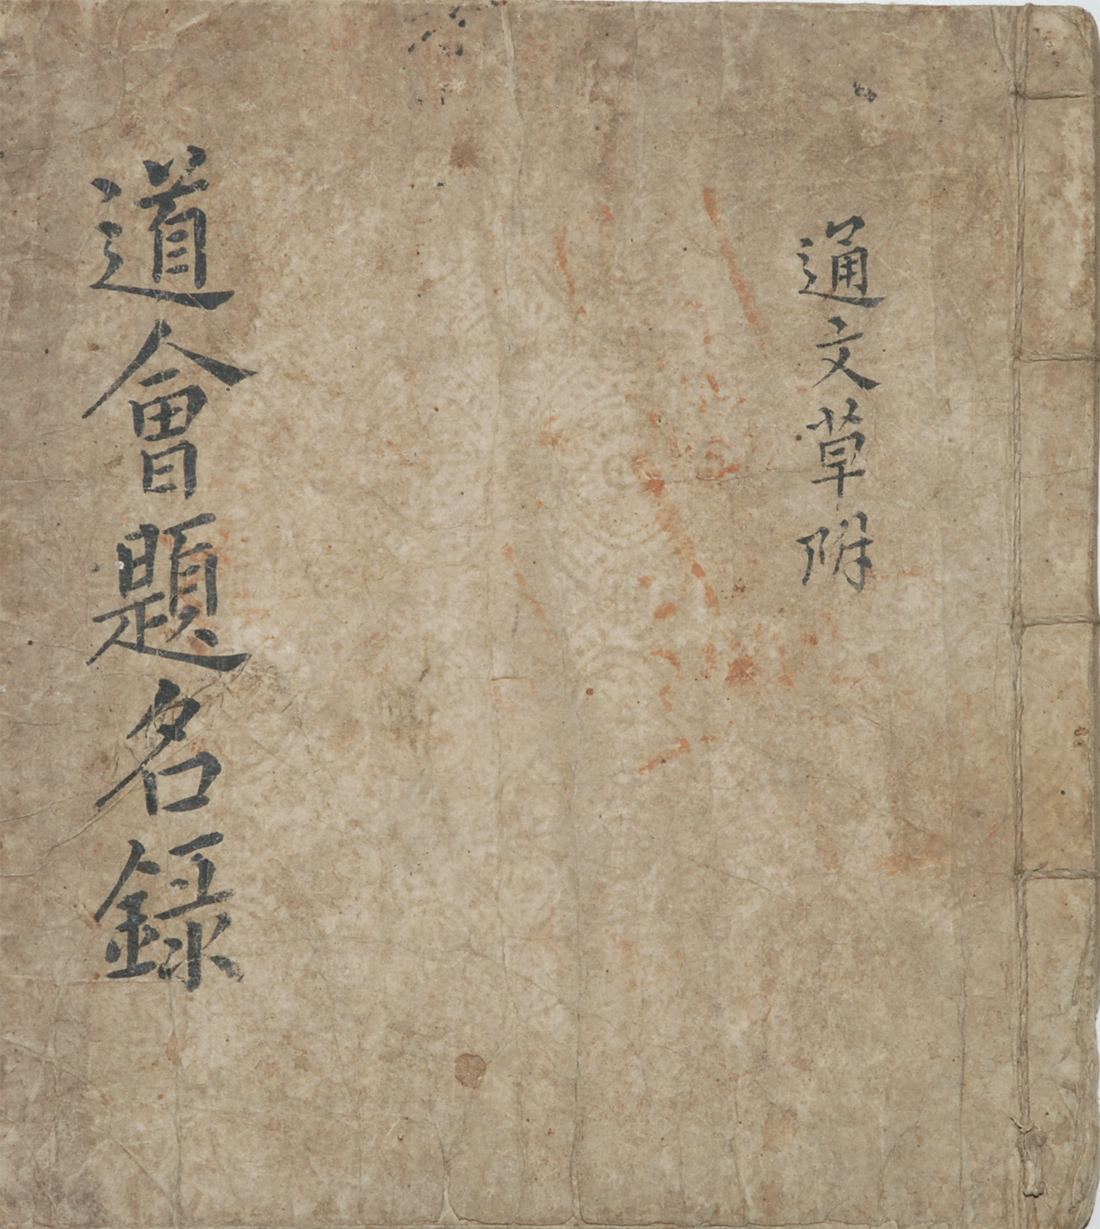 通文草附
道會題名錄